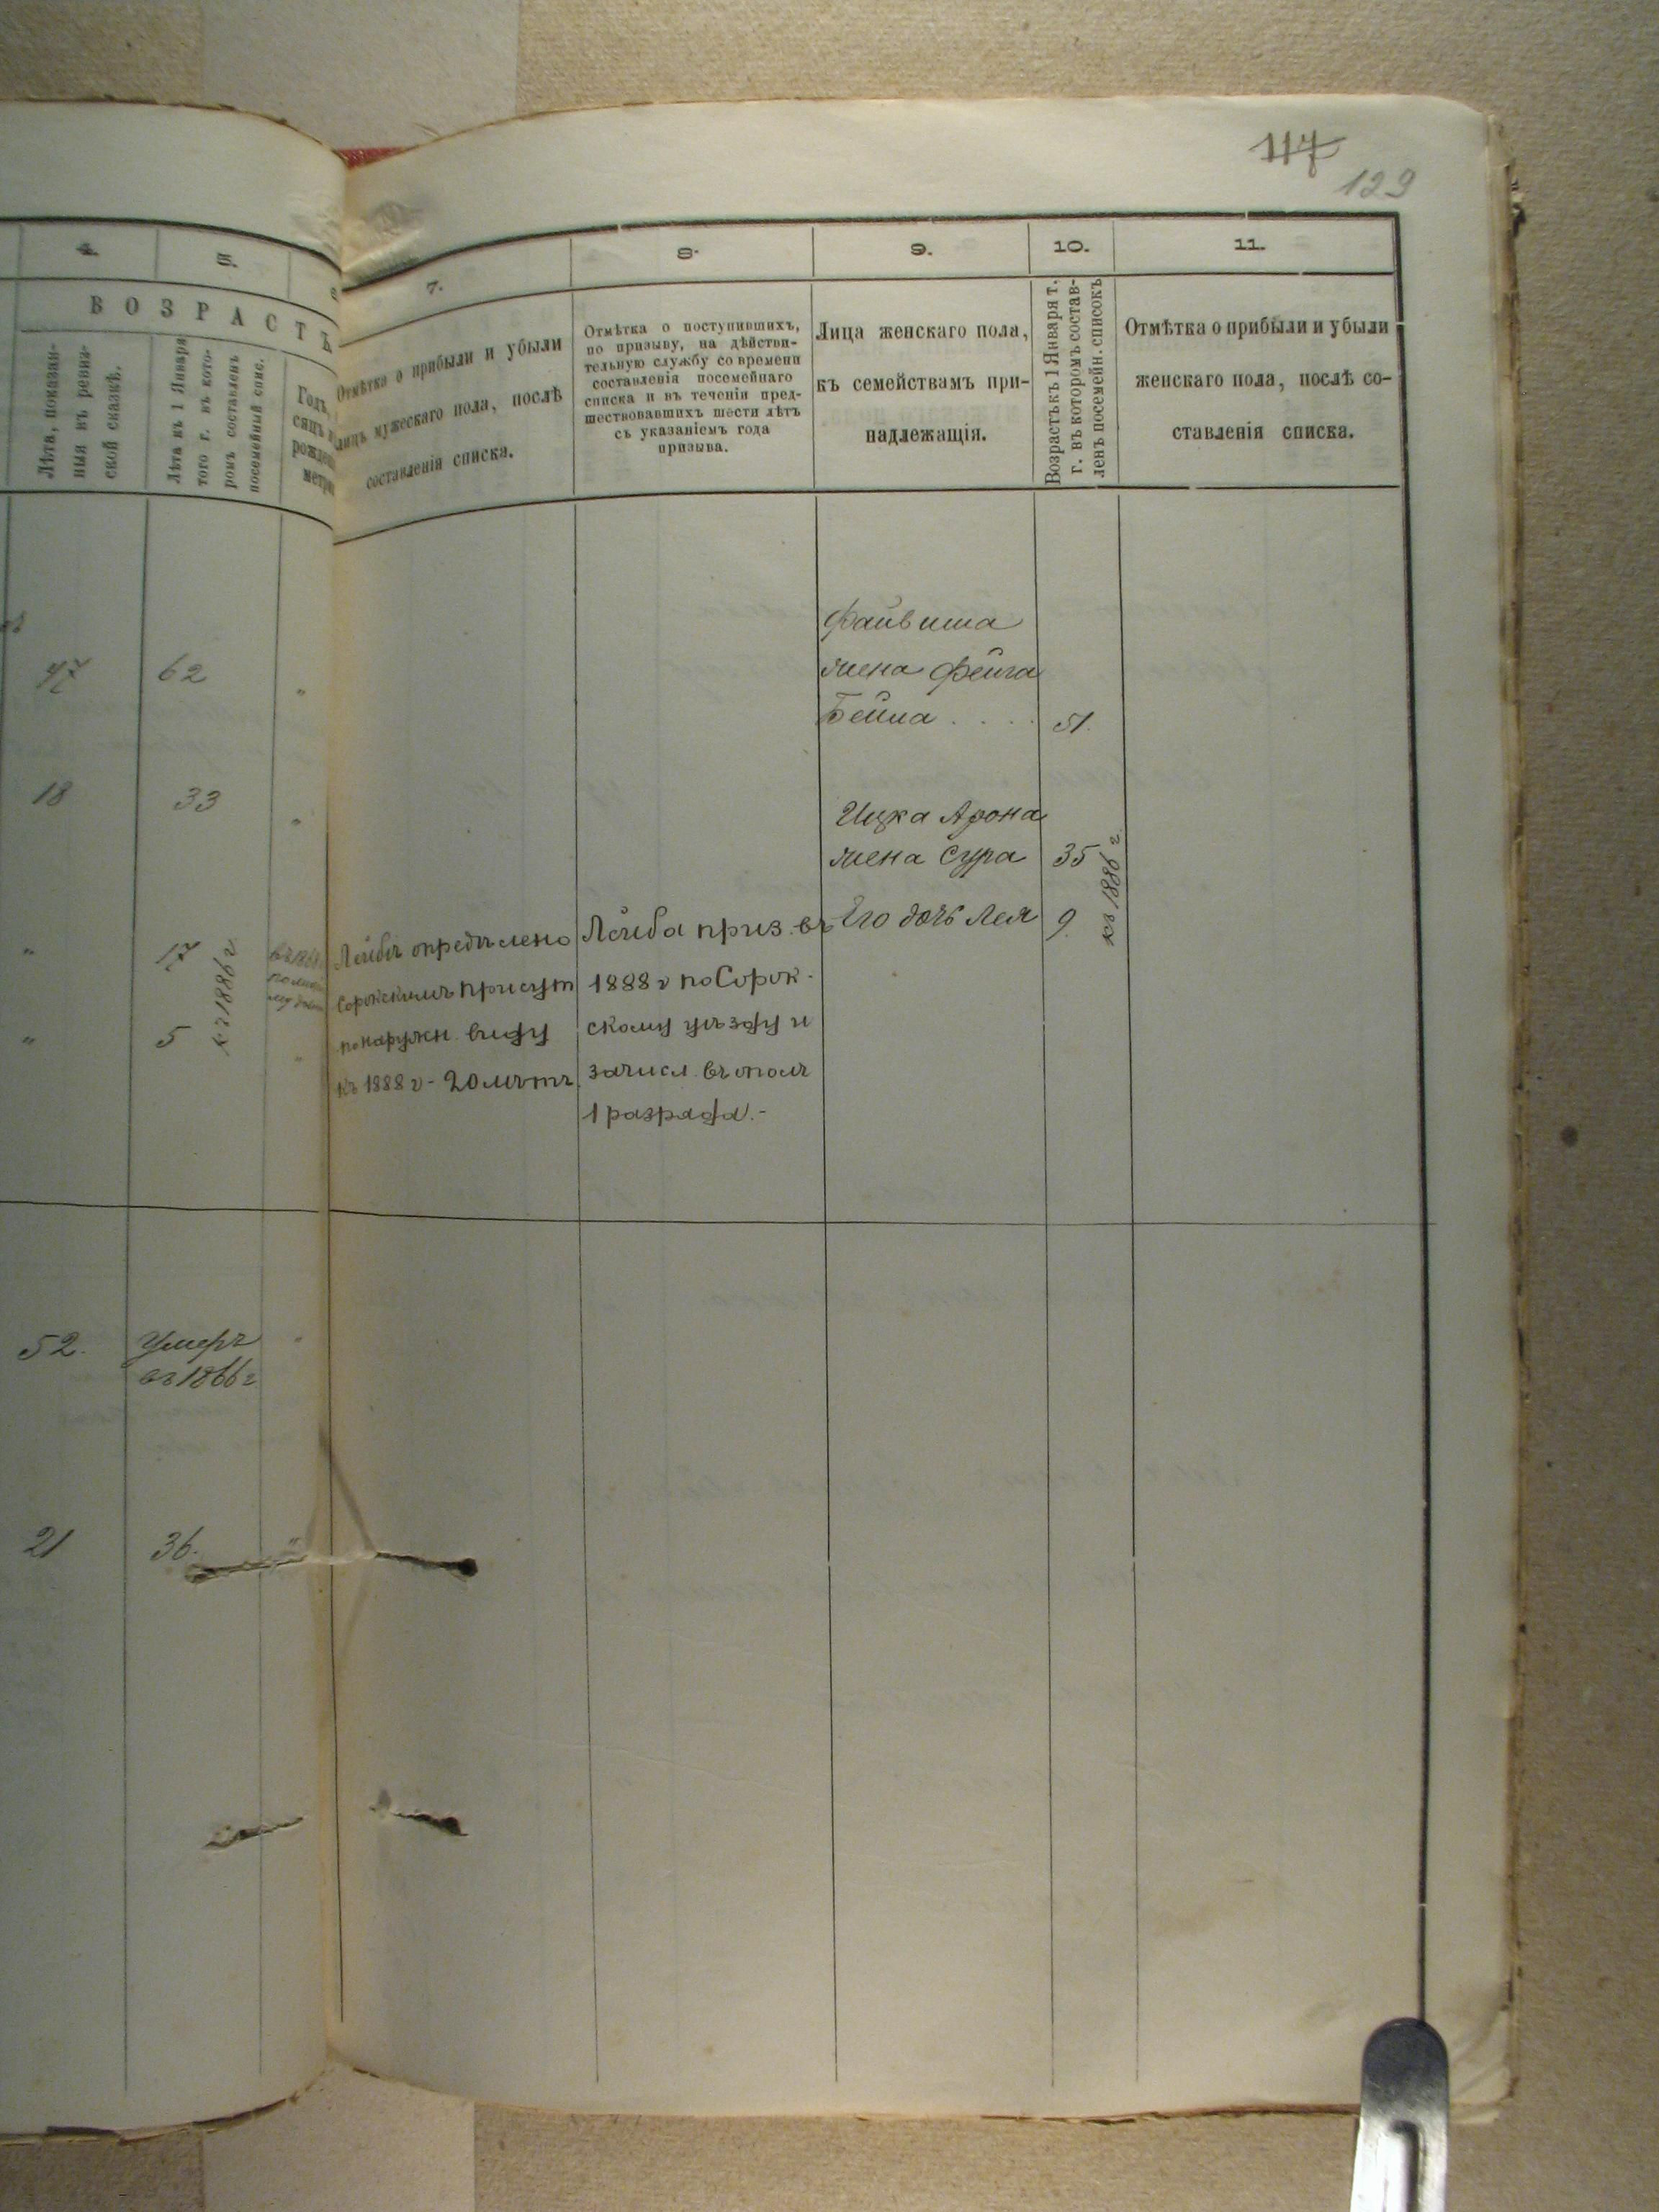 117
129
4.
5.
ВОЗРАСТЪ
Лѣта, показан-
ныя въ ревиз-
ской сказкѣ.
Лѣта къ 1 Января
того г. въ кото-
ромъ составленъ
посемейный спис.
Годъ,
сяцъ и
рожден
метри
7.
Отмѣтка о прибыли и убыли
лицъ мужескаго пола, послѣ
составленія списка.
8.
Отмѣтка о поступившихъ,
по призыву, на дѣйстви-
тельную службу со времени
составленія посемейнаго
списка и въ теченіи пред-
шествовавшихъ шести лѣтъ
съ указаніемъ года
призыва.
9.
Лица женскаго пола,
къ семействамъ при-
надлежащія.
10.
Возрастъ къ 1 Января т.
г. въ которомъ состав-
ленъ посемейн. списокъ
11.
Отмѣтка о прибыли и убыли
женскаго пола, послѣ со-
ставленія списка.
47 62 "
18 33 "
" 17
" 5 "
къ 1886 г
Лейбѣ опредѣлено
Сорокскимъ присут
по наружн. виду
къ 1888 г - 20 лѣтъ
Лейба приз. въ
1888 г по Сорок-
скому уѣзду и
зачисл. въ опол
1 разряда.-
Файвиша
жена Фейга
Бейла . . . . 51.
Ицка Арона
жена Сура 35
Его дочь Лея 9
къ 1886 г.
52. Умеръ "
въ 1866 г
21 36. "